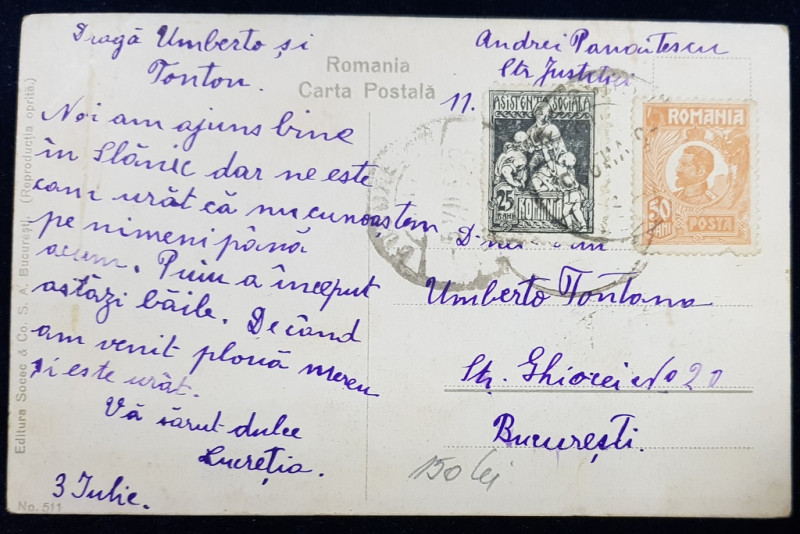 Dragă Umberto și
Tonton.
Noi am ajuns bine
în Slănic dar ne este
cam urât că nu cunoaștem
pe nimeni până
acum. Puiu a început
astăzi băile. De când
am venit plouă mereu
și este urât.
Vă sărut dulce
Lucreția.
3 Iulie.
No. 511
Editura Socec & Co. S. A. București. (Reproducția oprită.)
Romania
Carta Postală
Andrei Panaitescu
Str Justiției
11.
ASISTENȚA SOCIALA
25
BANI
ROMANIA
ROMANIA
50
BANI
POSTA
Umberto Tontana
Str. Ghiocei No 20
București.
150 lei